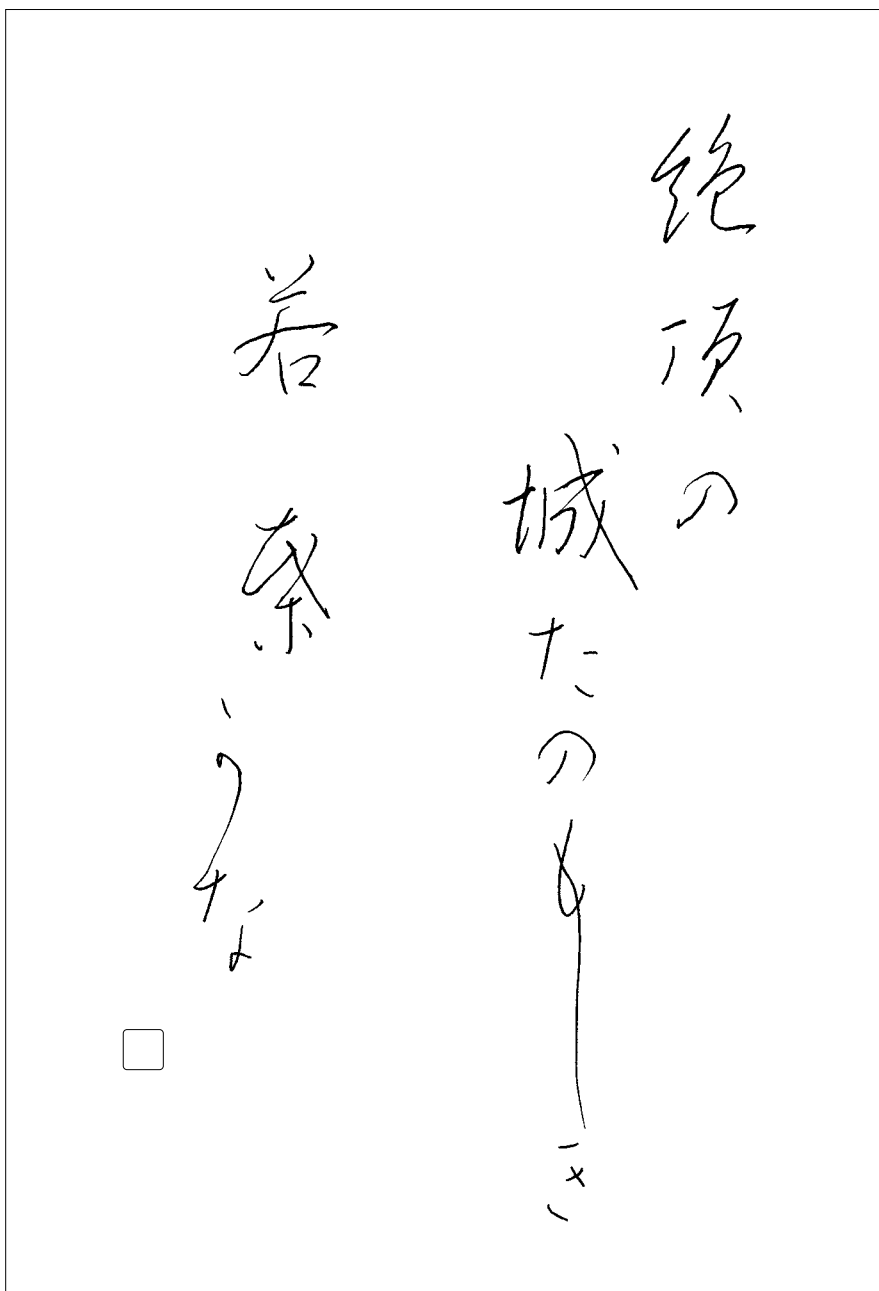 絶頂の
城たのもしき
若葉かな